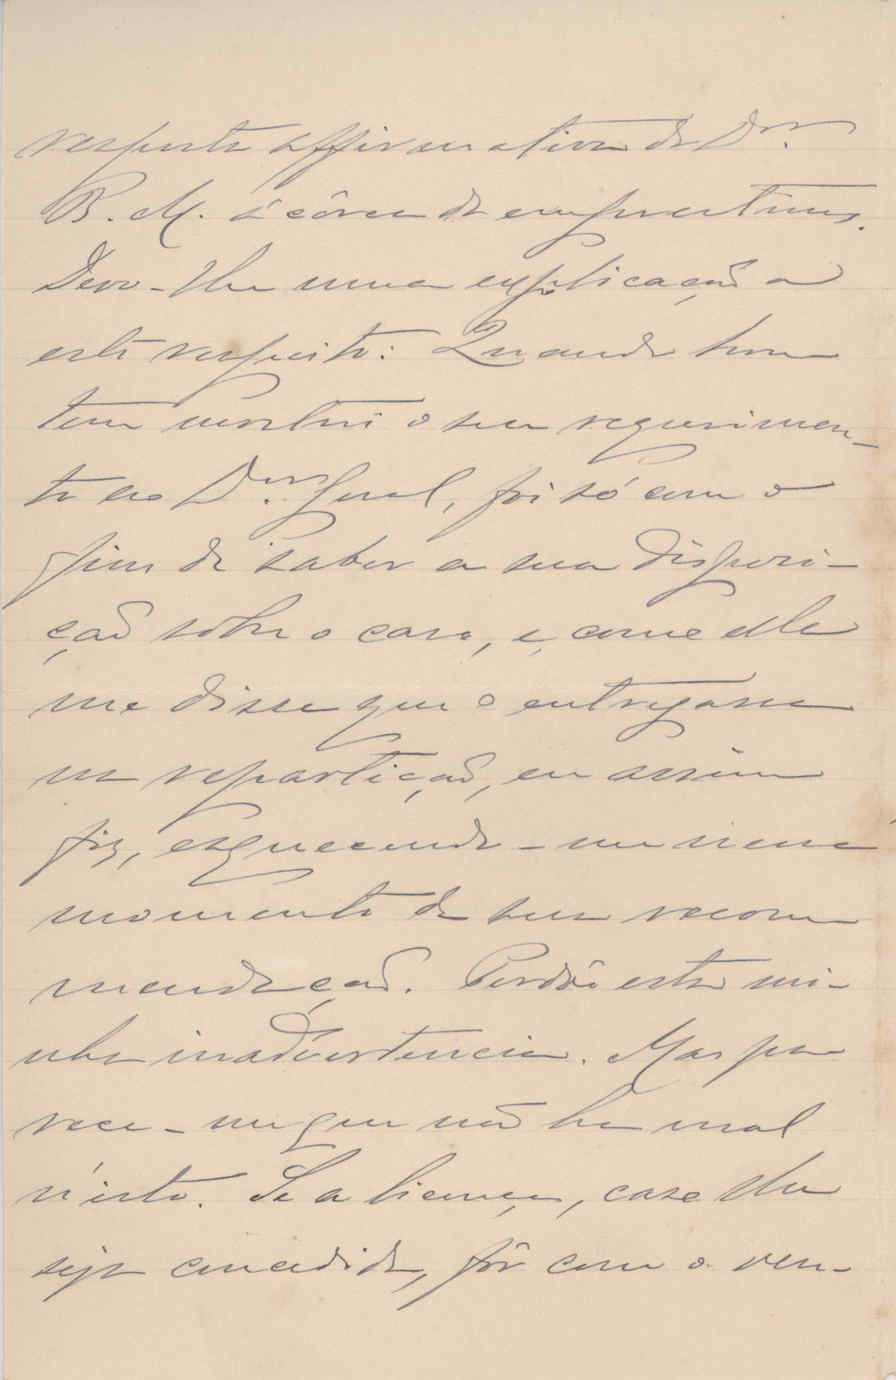 resposta affirmativa do Dr.
B. M. ácêrca de emprestimos.
Devo-lhe uma explicação a
este respeito: Quando hon
tem mostrei o seu requerimen-
to ao Dor. Geral, foi só com o
fim de saber a sua disposi-
ção sobre o caso, e, como elle
me disse que o entregasse
na repartição, eu assim
fiz, esquecendo-me nesse
momento da sua recom
mendação. Perdôe esta mi-
nha inadvertencia. Mas pa
rece-me que não ha mal
n'isto. Se a licença, caso lhe
seja concedida, fôr com o ven-